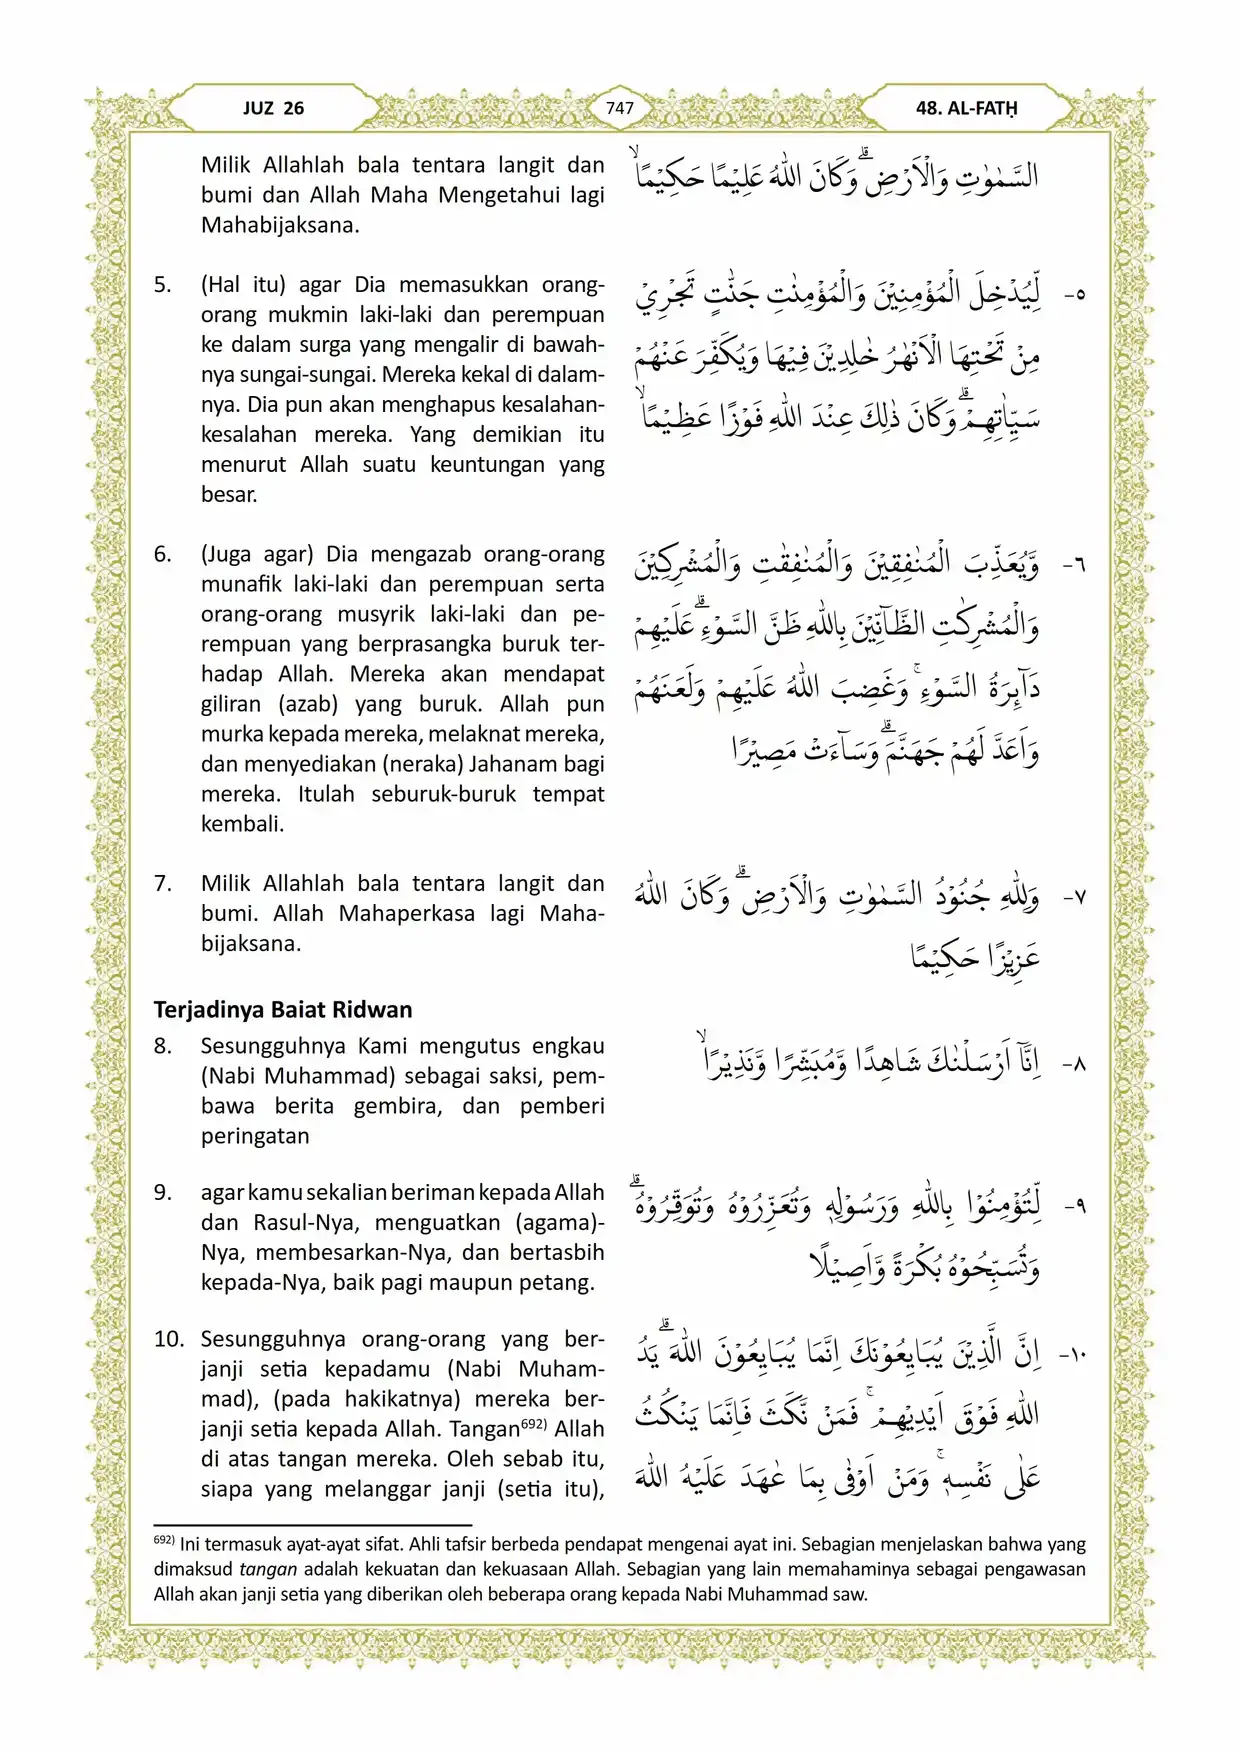 JUZ 26
747
48. AL-FATḤ
Milik Allahlah bala tentara langit dan
bumi dan Allah Maha Mengetahui lagi
Mahabijaksana.
السَّمٰوٰتِ وَالْاَرْضِۗ وَكَانَ اللّٰهُ عَلِيْمًا حَكِيْمًاۙ
5. (Hal itu) agar Dia memasukkan orang-
orang mukmin laki-laki dan perempuan
ke dalam surga yang mengalir di bawah-
nya sungai-sungai. Mereka kekal di dalam-
nya. Dia pun akan menghapus kesalahan-
kesalahan mereka. Yang demikian itu
menurut Allah suatu keuntungan yang
besar.
٥- لِّيُدْخِلَ الْمُؤْمِنِيْنَ وَالْمُؤْمِنٰتِ جَنّٰتٍ تَجْرِيْ
مِنْ تَحْتِهَا الْاَنْهٰرُ خٰلِدِيْنَ فِيْهَا وَيُكَفِّرَ عَنْهُمْ
سَيِّاٰتِهِمْۗ وَكَانَ ذٰلِكَ عِنْدَ اللّٰهِ فَوْزًا عَظِيْمًاۙ
6. (Juga agar) Dia mengazab orang-orang
munafik laki-laki dan perempuan serta
orang-orang musyrik laki-laki dan pe-
rempuan yang berprasangka buruk ter-
hadap Allah. Mereka akan mendapat
giliran (azab) yang buruk. Allah pun
murka kepada mereka, melaknat mereka,
dan menyediakan (neraka) Jahanam bagi
mereka. Itulah seburuk-buruk tempat
kembali.
٦- وَّيُعَذِّبَ الْمُنٰفِقِيْنَ وَالْمُنٰفِقٰتِ وَالْمُشْرِكِيْنَ
وَالْمُشْرِكٰتِ الظَّاۤنِّيْنَ بِاللّٰهِ ظَنَّ السَّوْءِۗ عَلَيْهِمْ
دَاۤىِٕرَةُ السَّوْءِۚ وَغَضِبَ اللّٰهُ عَلَيْهِمْ وَلَعَنَهُمْ
وَاَعَدَّ لَهُمْ جَهَنَّمَۗ وَسَاۤءَتْ مَصِيْرًا
7. Milik Allahlah bala tentara langit dan
bumi. Allah Mahaperkasa lagi Maha-
bijaksana.
٧- وَلِلّٰهِ جُنُوْدُ السَّمٰوٰتِ وَالْاَرْضِۗ وَكَانَ اللّٰهُ
عَزِيْزًا حَكِيْمًا
Terjadinya Baiat Ridwan
8. Sesungguhnya Kami mengutus engkau
(Nabi Muhammad) sebagai saksi, pem-
bawa berita gembira, dan pemberi
peringatan
٨- اِنَّآ اَرْسَلْنٰكَ شَاهِدًا وَّمُبَشِّرًا وَّنَذِيْرًاۙ
9. agar kamu sekalian beriman kepada Allah
dan Rasul-Nya, menguatkan (agama)-
Nya, membesarkan-Nya, dan bertasbih
kepada-Nya, baik pagi maupun petang.
٩- لِّتُؤْمِنُوْا بِاللّٰهِ وَرَسُوْلِهٖ وَتُعَزِّرُوْهُ وَتُوَقِّرُوْهُۗ
وَتُسَبِّحُوْهُ بُكْرَةً وَّاَصِيْلًا
10. Sesungguhnya orang-orang yang ber-
janji setia kepadamu (Nabi Muham-
mad), (pada hakikatnya) mereka ber-
janji setia kepada Allah. Tangan⁶⁹²⁾ Allah
di atas tangan mereka. Oleh sebab itu,
siapa yang melanggar janji (setia itu),
١٠- اِنَّ الَّذِيْنَ يُبَايِعُوْنَكَ اِنَّمَا يُبَايِعُوْنَ اللّٰهَ ۗيَدُ
اللّٰهِ فَوْقَ اَيْدِيْهِمْ ۚ فَمَنْ نَّكَثَ فَاِنَّمَا يَنْكُثُ
عَلٰى نَفْسِهٖۚ وَمَنْ اَوْفٰى بِمَا عٰهَدَ عَلَيْهُ اللّٰهَ
⁶⁹²⁾ Ini termasuk ayat-ayat sifat. Ahli tafsir berbeda pendapat mengenai ayat ini. Sebagian menjelaskan bahwa yang
dimaksud tangan adalah kekuatan dan kekuasaan Allah. Sebagian yang lain memahaminya sebagai pengawasan
Allah akan janji setia yang diberikan oleh beberapa orang kepada Nabi Muhammad saw.